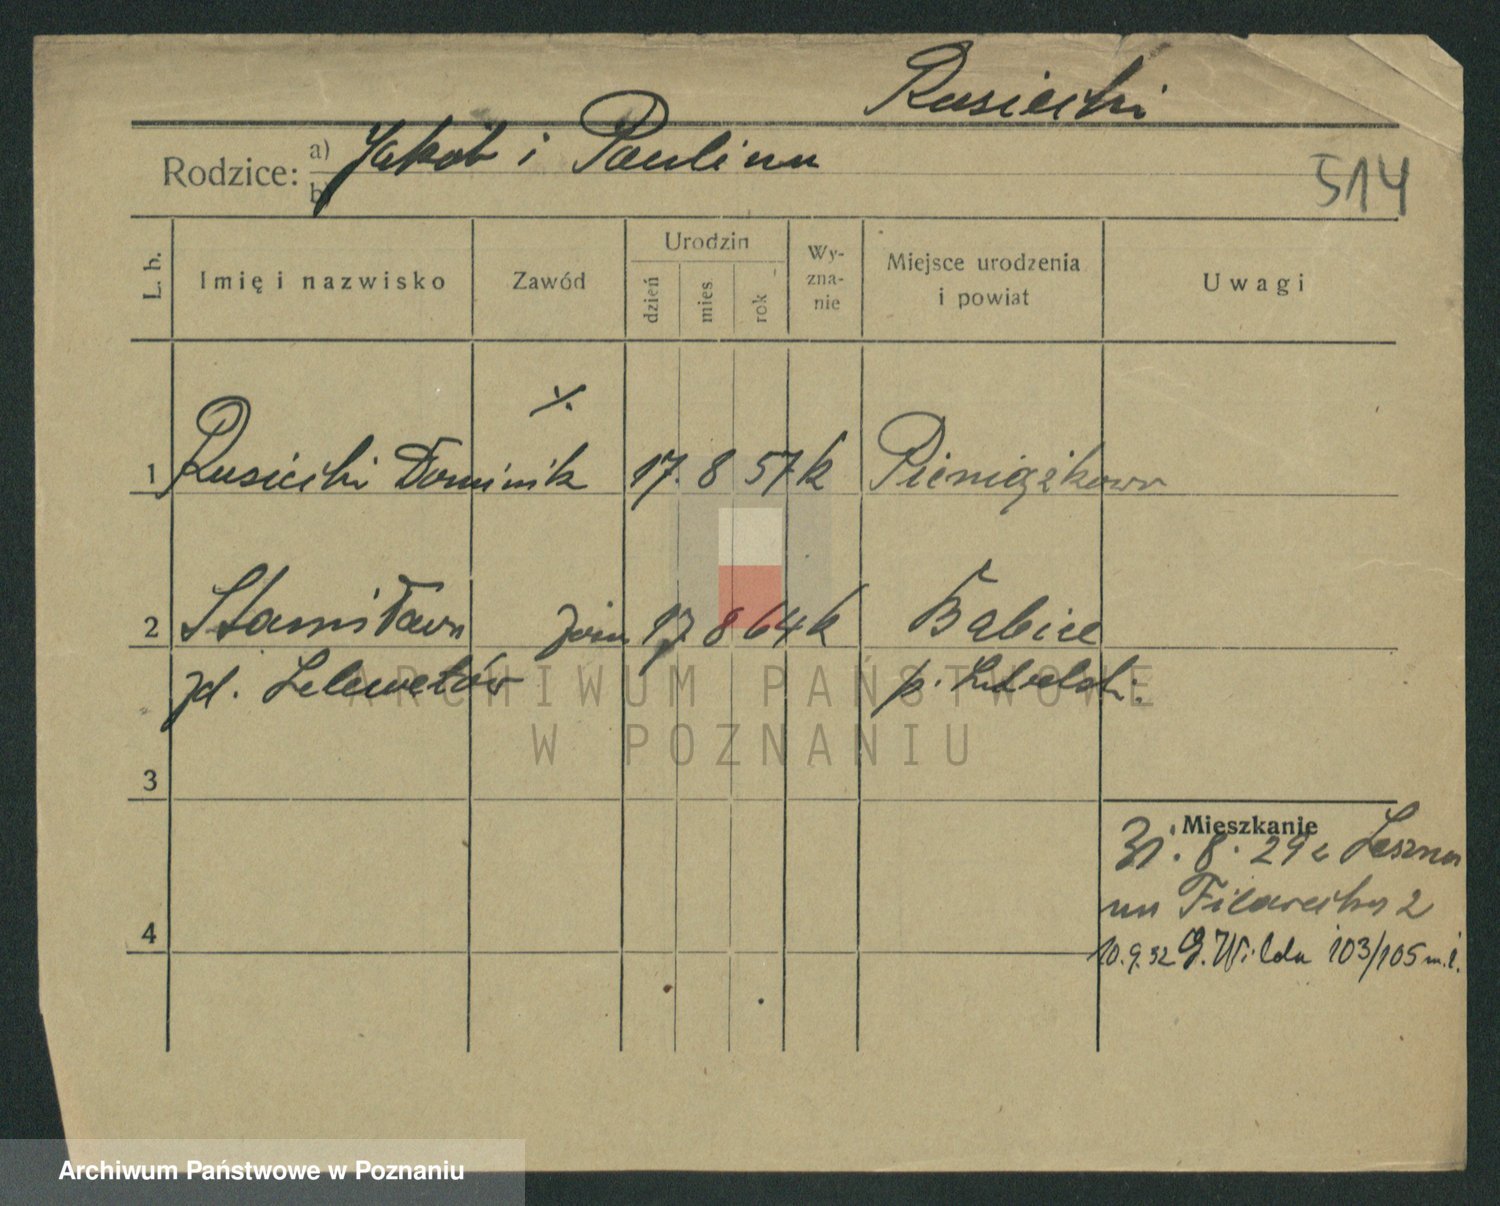 Rusiecki
Rodzice: a) Jakób i Paulina
b)
514
L. b. Imię i nazwisko Zawód Urodzin dzień mies. rok Wyznanie Miejsce urodzenia i powiat Uwagi
1 Rusiecki Dominik 17. 8 57 k Pieniążkowo
2 Stanisława żona 17 8 64 k Babice
zd. p. Lubelski
3
Mieszkanie
31. 8. 29 z Leszna
na Filarecka 2
4
10.9.32 G. Wilda 103/105 m. 1.
ARCHIWUM PAŃSTWOWE
W POZNANIU
Archiwum Państwowe w Poznaniu